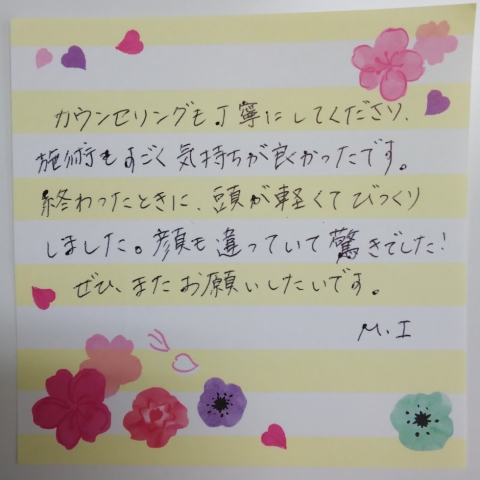 カウンセリングも丁寧にしてくださり、
施術もすごく気持ちが良かったです。
終わったときに、頭が軽くてびっくり
しました。顔も違っていて驚きでした!
ぜひ、またお願いしたいです。
M.I